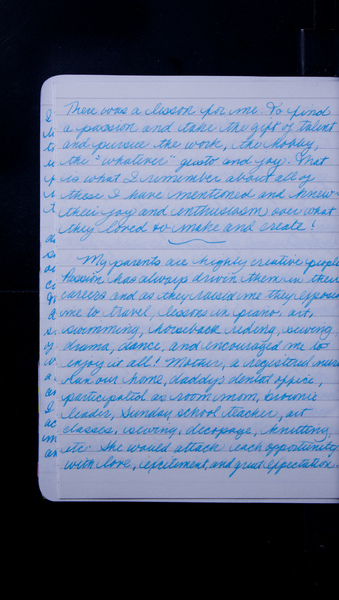 There was a lesson for me. To find
a passion and take the gift of talent
and pursue the work, the hobby,
the "whatever" gusto and joy. That
is what I remember about all of
these I have mentioned and knew
their joy and enthusiasm over what
they loved to make and create!
My parents are highly creative people
Passion has always driven them in their
careers and as they raised me they exposed
me to travel, lessons in piano, art,
swimming, horseback riding, sewing
drama, dance, and encouraged me to
enjoy it all! Mother, a registered nurse
ran our home, daddy's dentist office,
participated as room mom, brownie
leader, Sunday school teacher, art
classes, sewing, decopage, knitting,
etc. She would attack each opportunity
with love, excitement, and great expectation.